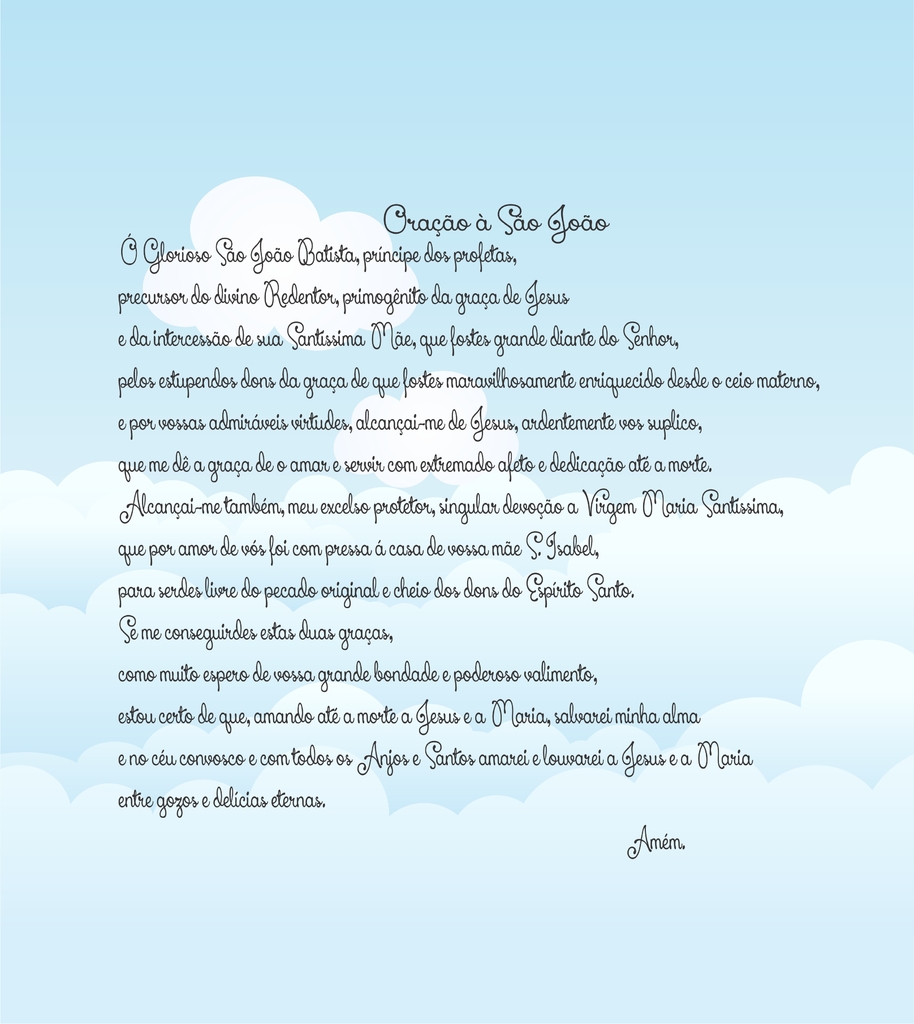 Oração à São João
Ó Glorioso São João Batista, príncipe dos profetas,
precursor do divino Redentor, primogênito da graça de Jesus
e da intercessão de sua Santissima Mãe, que fostes grande diante do Senhor,
pelos estupendos dons da graça de que fostes maravilhosamente enriquecido desde o ceio materno,
e por vossas admiráveis virtudes, alcançai-me de Jesus, ardentemente vos suplico,
que me dê a graça de o amar e servir com extremado afeto e dedicação até a morte.
Alcançai-me também, meu excelso protetor, singular devoção a Virgem Maria Santissima,
que por amor de vós foi com pressa á casa de vossa mãe S. Isabel,
para serdes livre do pecado original e cheio dos dons do Espírito Santo.
Se me conseguirdes estas duas graças,
como muito espero de vossa grande bondade e poderoso valimento,
estou certo de que, amando até a morte a Jesus e a Maria, salvarei minha alma
e no céu convosco e com todos os Anjos e Santos amarei e louvarei a Jesus e a Maria
entre gozos e delícias eternas.
Amém.